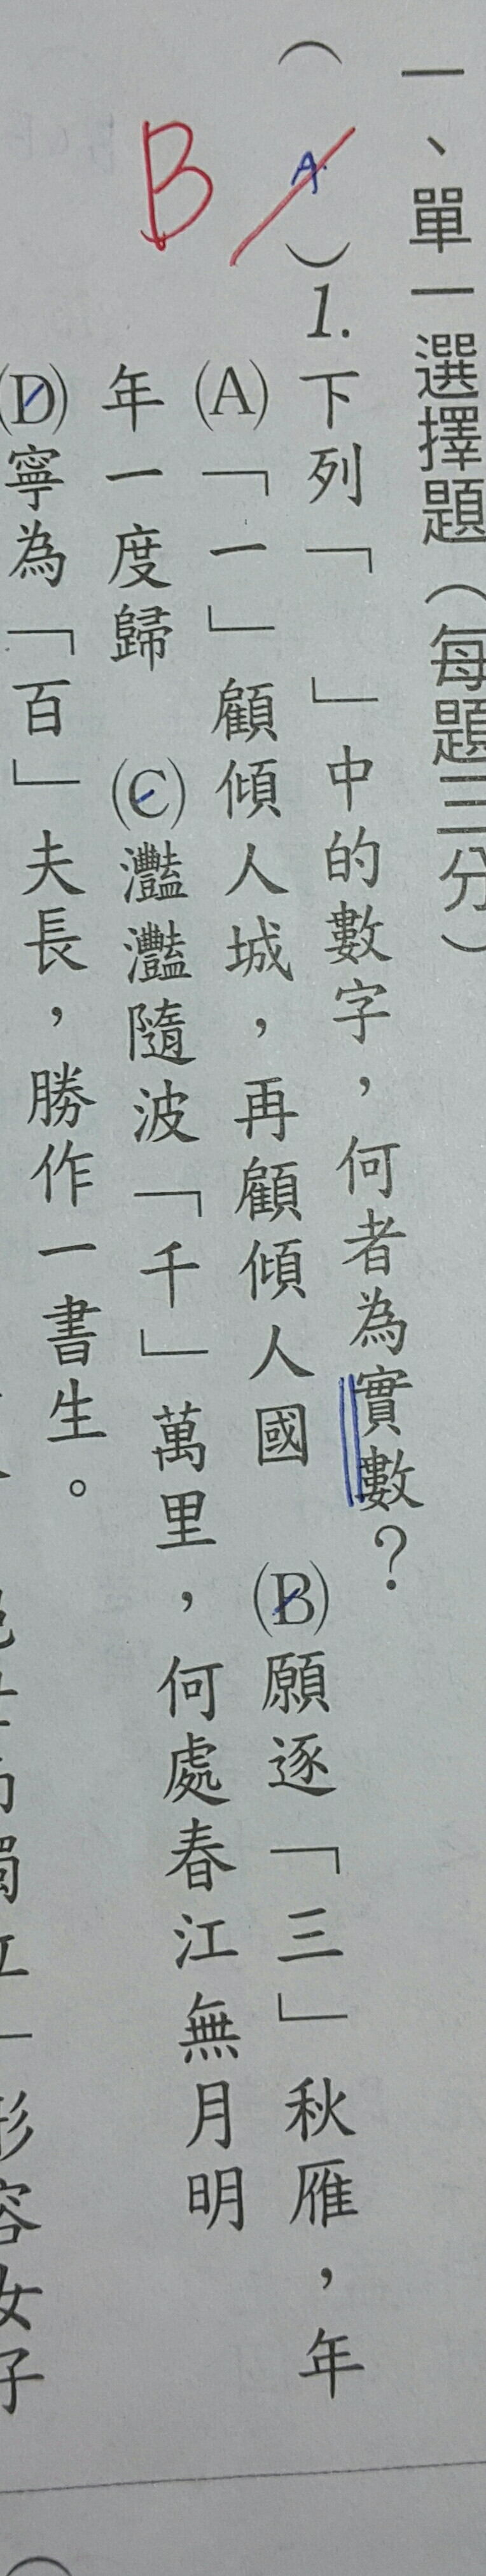 一、單一選擇題（每題三分）
（A）1.下列「　」中的數字，何者為實數？
B
(A)「一」顧傾人城，再顧傾人國　(B)願逐「三」秋雁，年
年一度歸　(C)灩灩隨波「千」萬里，何處春江無月明
(D)寧為「百」夫長，勝作一書生。